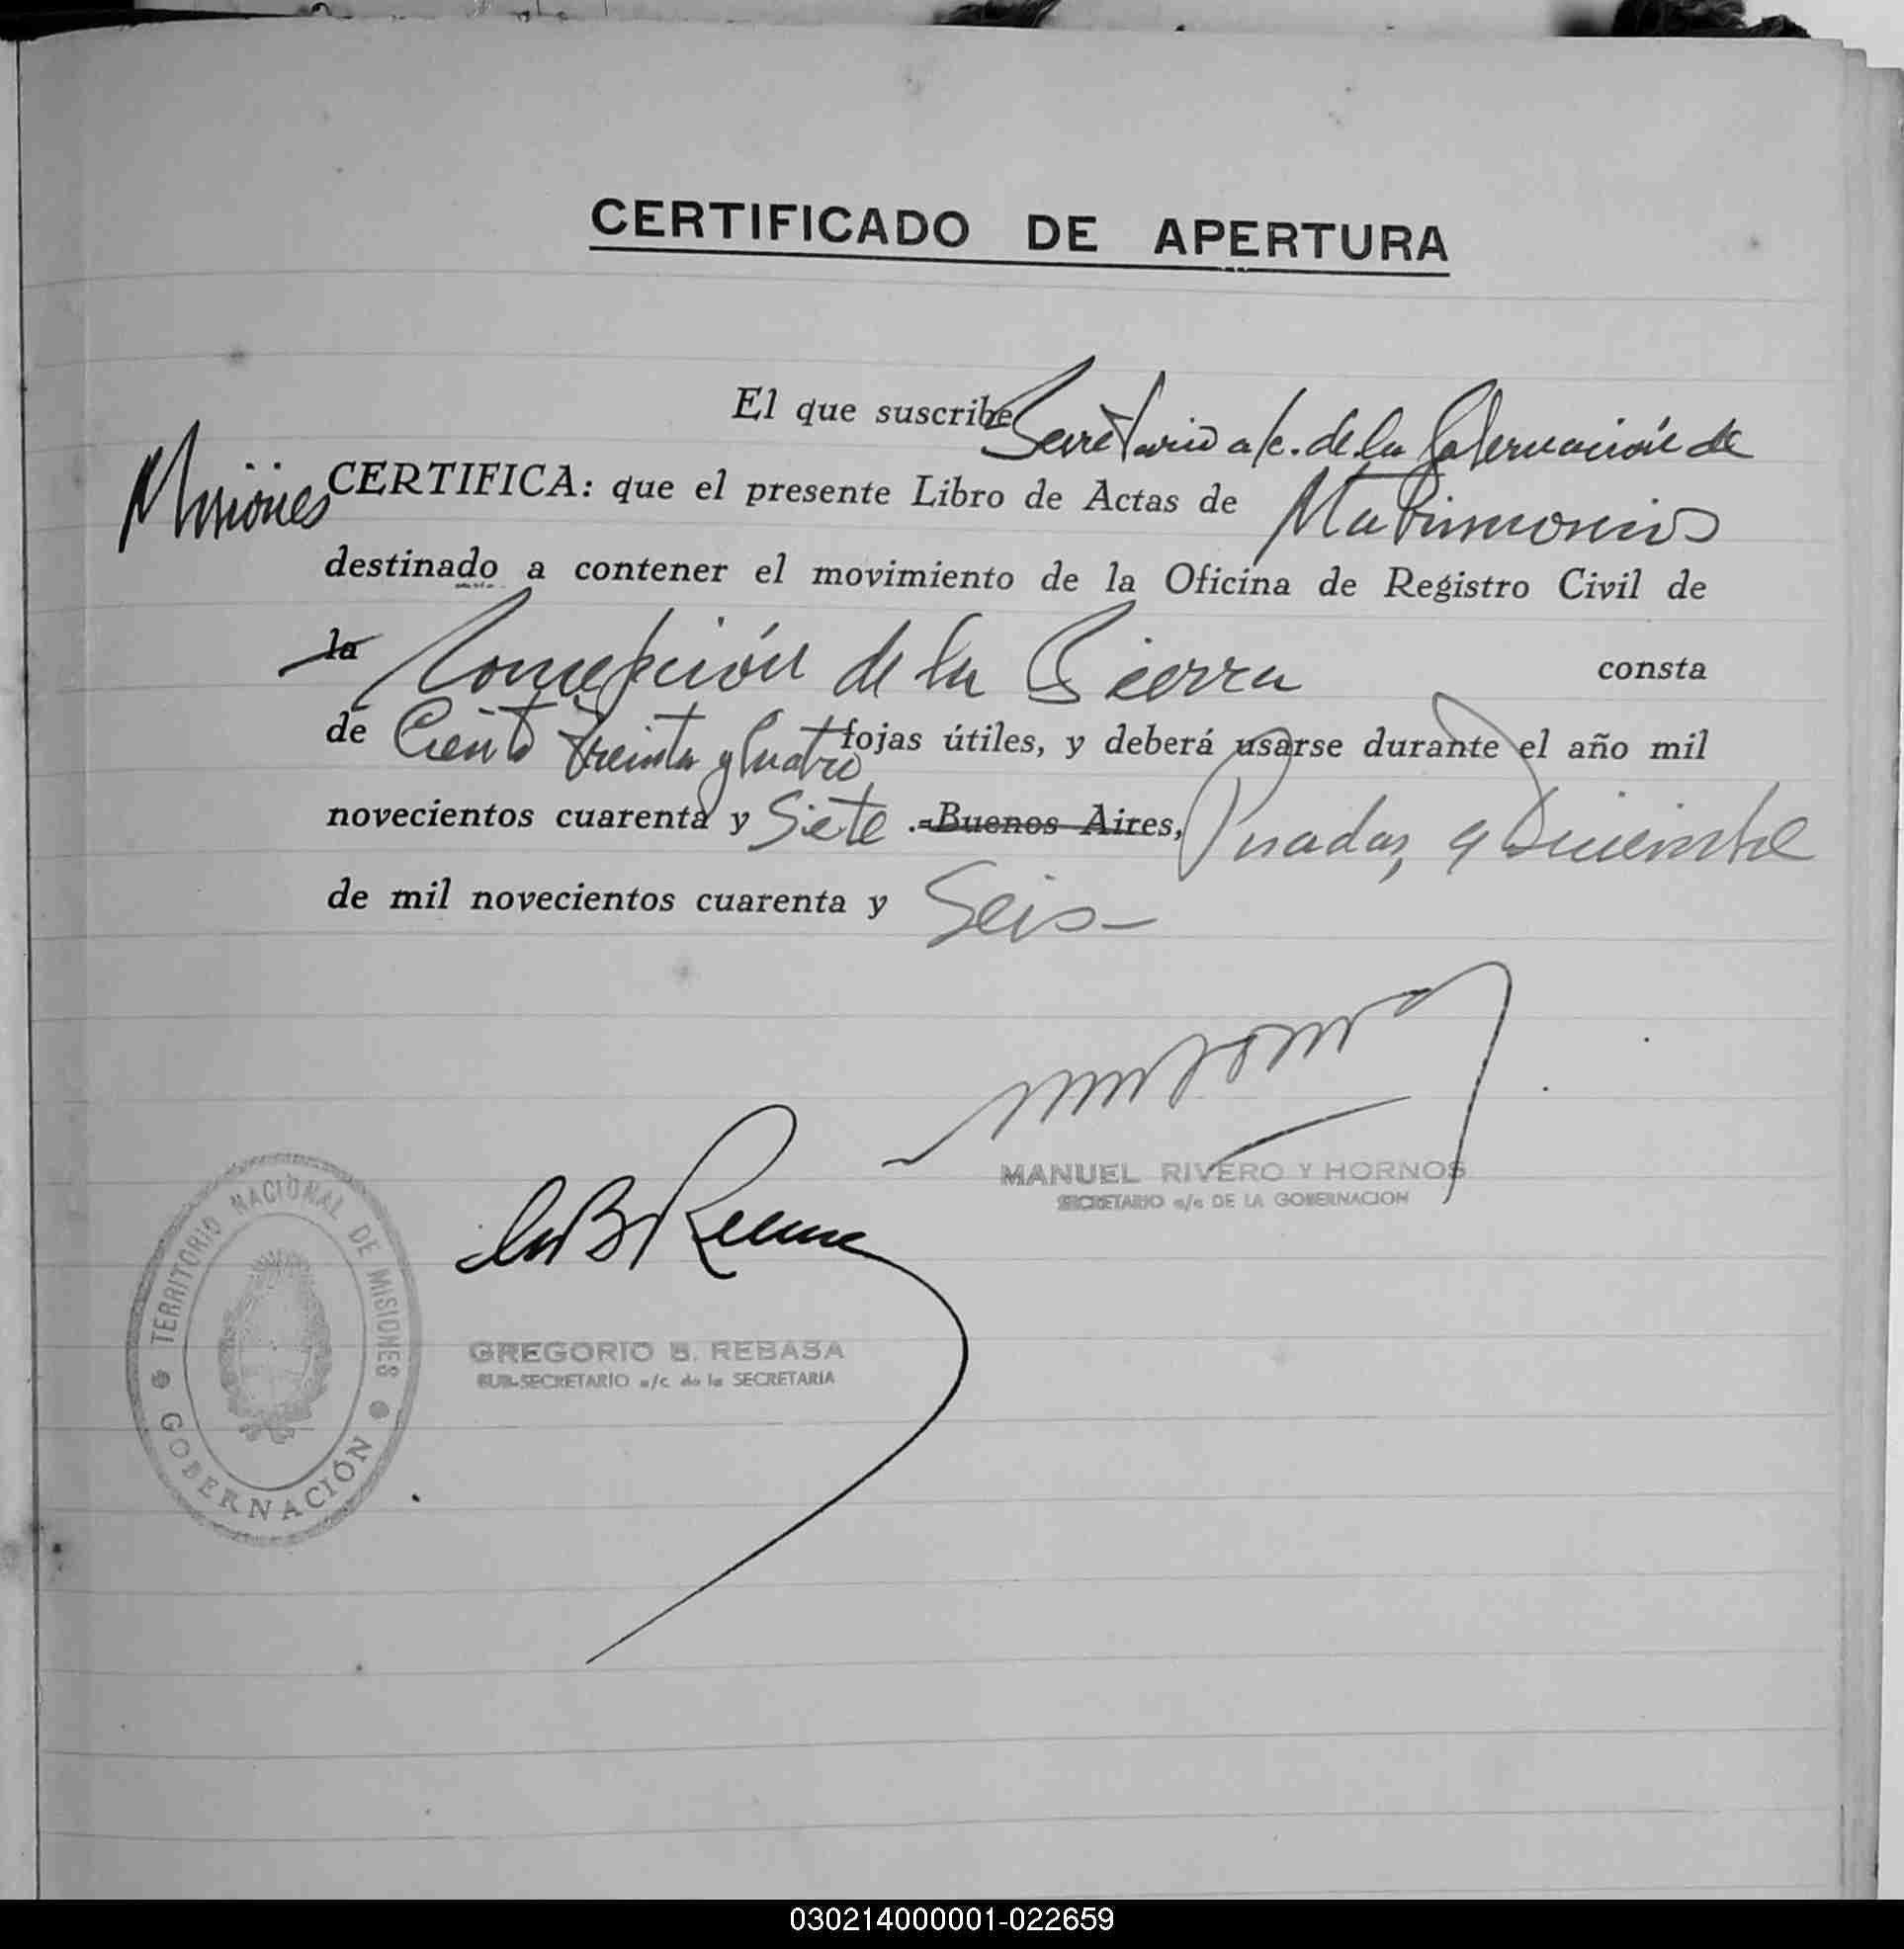 CERTIFICADO DE APERTURA
El que suscribe Secretario a/c. de la Gobernación de
Misiones CERTIFICA: que el presente Libro de Actas de Matrimonios
destinado a contener el movimiento de la Oficina de Registro Civil de
la Concepción de la Sierra consta
de Ciento treinta y Cuatro fojas útiles, y deberá usarse durante el año mil
novecientos cuarenta y Siete .-Buenos Aires, Posadas, 9 Diciembre
de mil novecientos cuarenta y Seis-
MANUEL RIVERO Y HORNOS
SECRETARIO a/c DE LA GOBERNACION
TERRITORIO NACIONAL DE MISIONES
GOBERNACIÓN
GREGORIO B. REBASA
SUB-SECRETARIO a/c de la SECRETARIA
030214000001-022659